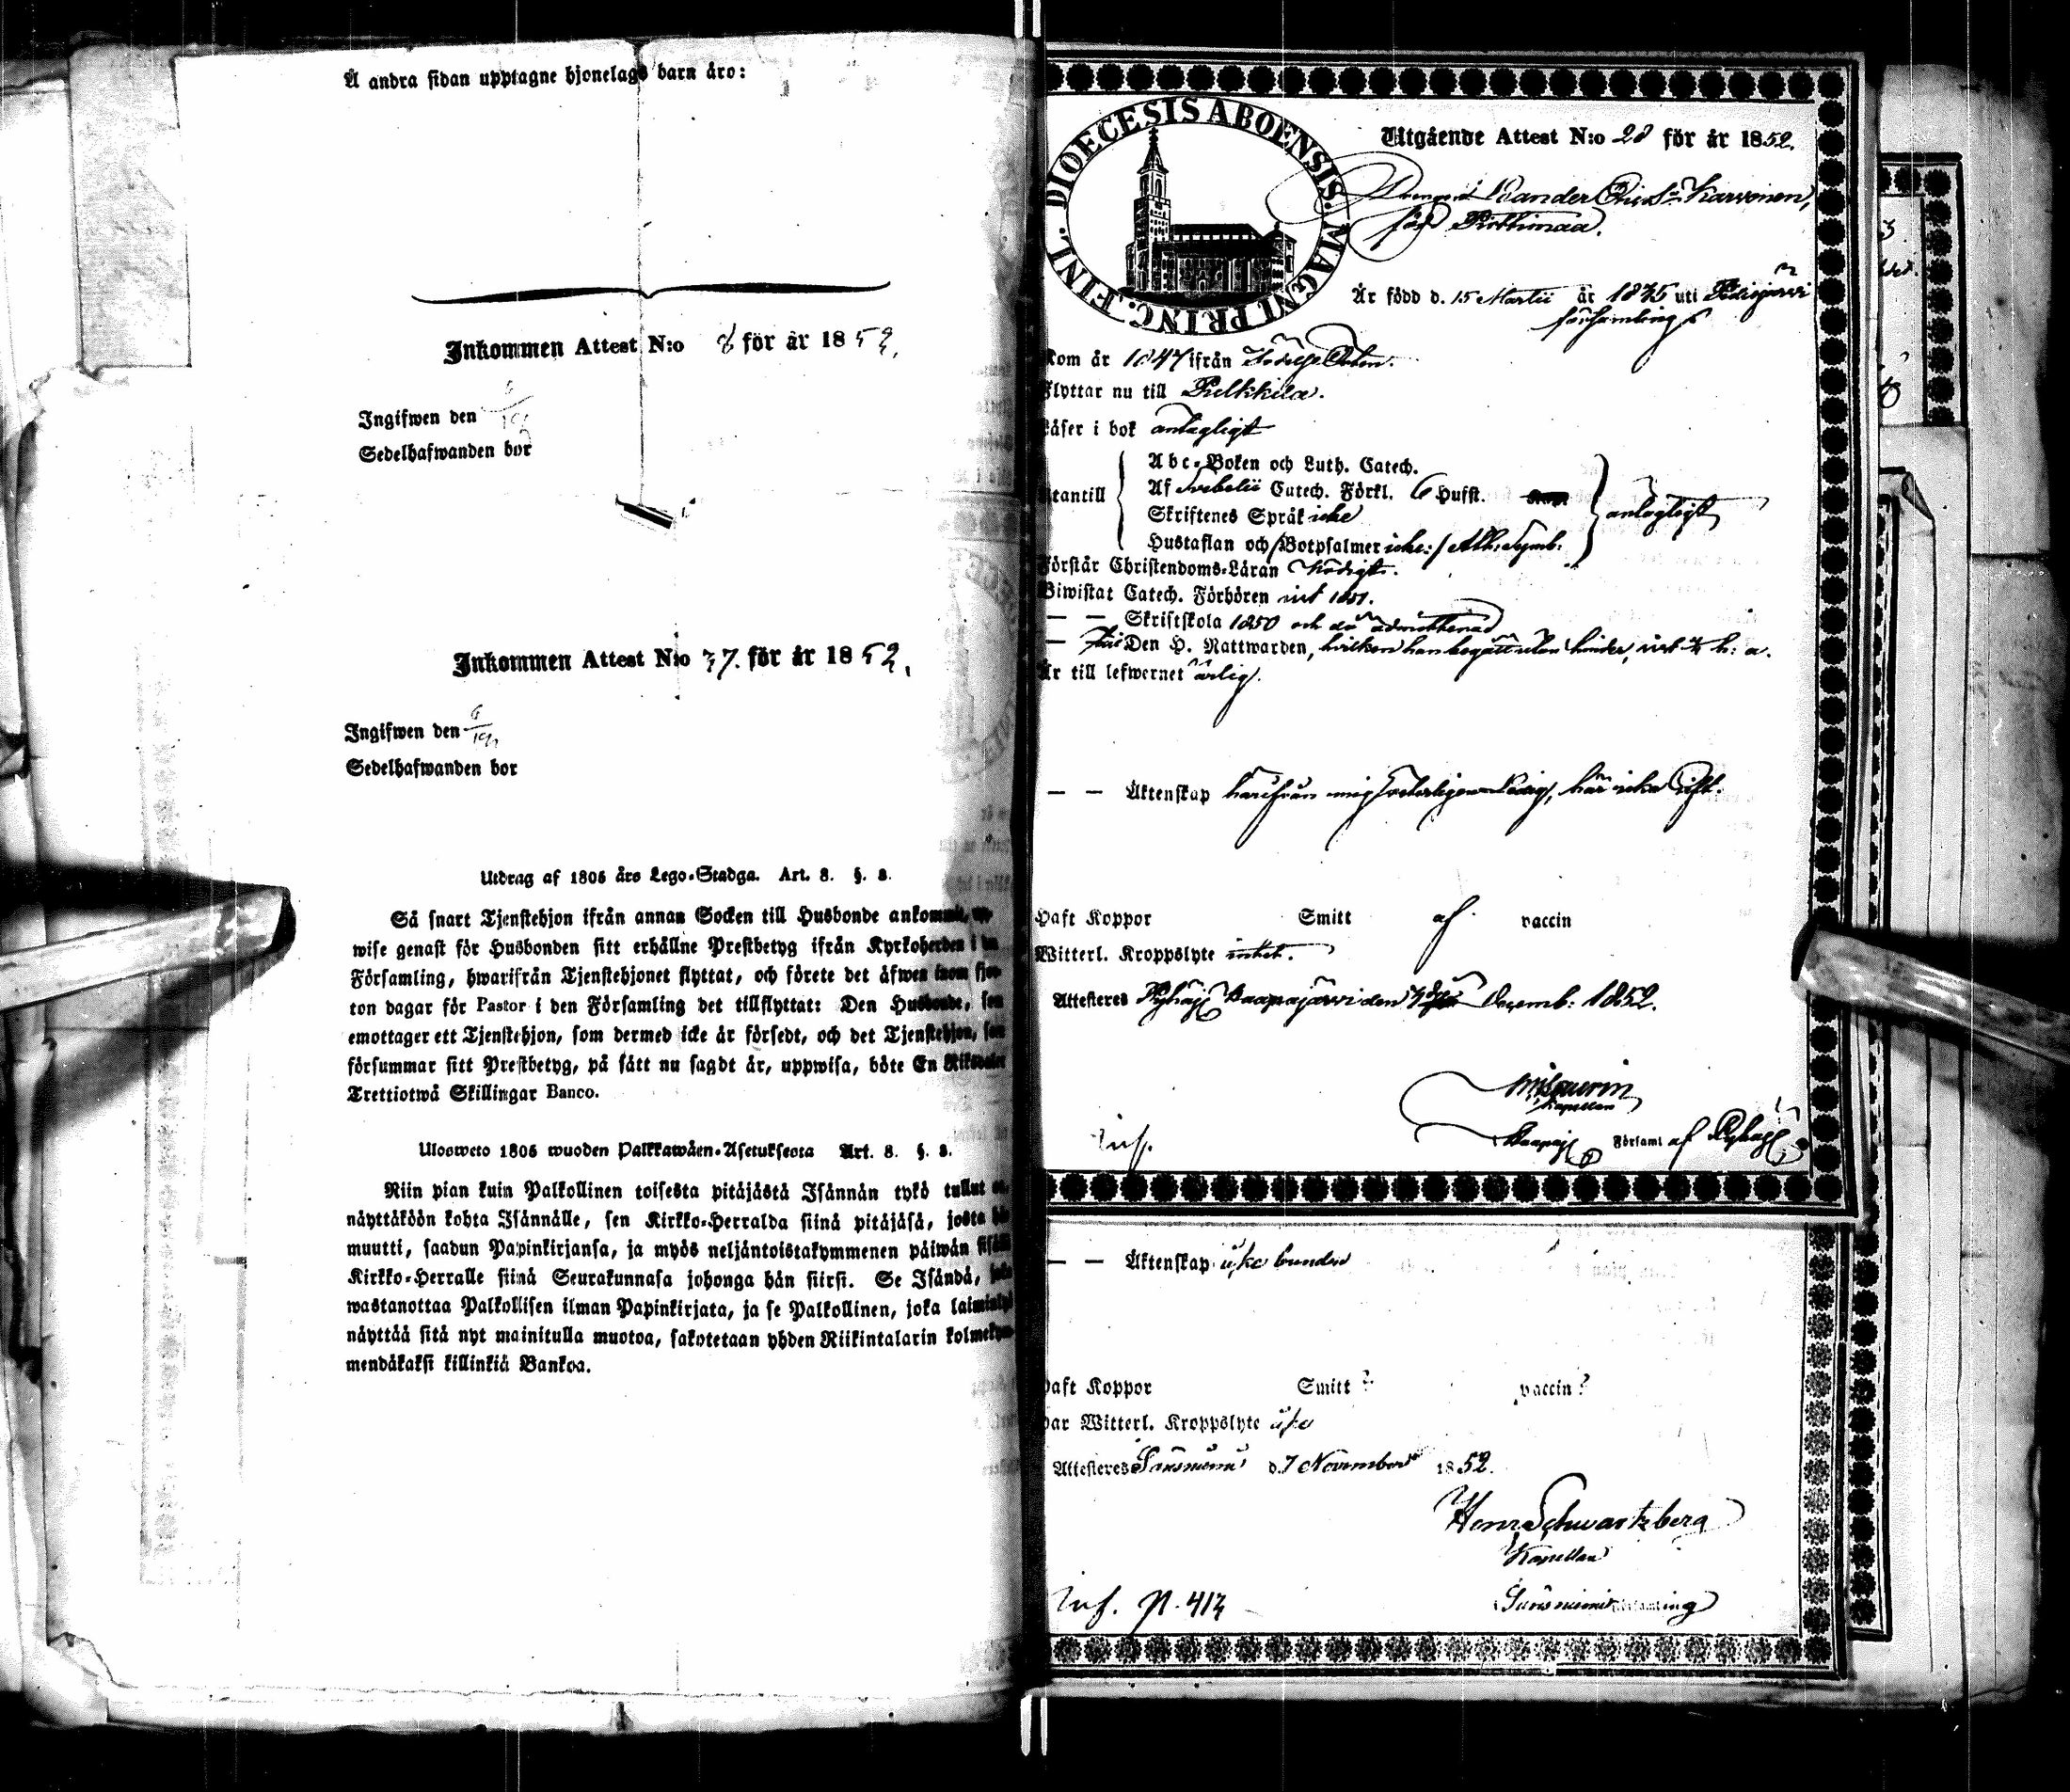 Å andra sidan upptagne hjonelags barn äro:
Inkommen Attest N:o 8 för år 1852.
Ingifwen den
Sedelhafwanden bor
Inkommen Attest N:o 37. för år 1852.
Ingifwen den
Sedelhafwanden bor
Utdrag af 1805 års Lego-Stadga. Art. 8. §. 8.
Så snart Tjenstehjon ifrån annan Socken till Husbonde ankommit,
wise genast för Husbonden sitt erhållne Prestbetyg ifrån Kyrkoherden i
Församling, hwarifrån Tjenstehjonet flyttat, och förete det äfwen inom fjor-
ton dagar för Pastor i den Församling det tillflyttat: Den Husbonde, som
emottager ett Tjenstehjon, som dermed icke är försedt, och det Tjenstehjon, som
försummar sitt Prestbetyg, på sätt nu sagdt är, uppwisa, böte En Riksdaler
Trettiotwå Skillingar Banco.
Ulosweto 1805 wuoden Palkkawäen-Asetuksesta Art. 8. §. 8.
Niin pian kuin Palkollinen toisesta pitäjästä Isännän tykö tullut
näyttäköön kohta Isännälle, sen Kirkko-Herralda siinä pitäjäsä, josta hän
muutti, saadun Papinkirjansa, ja myös neljäntoistakymmenen päiwän sisällä
Kirkko-Herralle siinä Seurakunnasa johonga hän siirsi. Se Isändä, joka
wastanottaa Palkollisen ilman Papinkirjata, ja se Palkollinen, joka
näyttää sitä nyt mainitulla muotoa, sakotetaan yhden Riikintalarin kolmekym-
mendäkaksi killinkiä Bankoa.
DIOECESIS ABOENSIS. MAGNI PRINC. FINL.
Utgående Attest N:o 28 för år 1852.
Drengen Karvonen,
född
Är född d. 15 Martii år 1835 uti
församling
Kom år 1847 ifrån
Flyttar nu till Pelkkila.
Läser i bok antagligt
Abc-Boken och Luth. Catech.
Utantill Af Svebelii Catech. Förkl. 6 Hufst. antagligt
Skriftenes Språk icke
Hustaflan och /Botpsalmer icke:/ Ath: Symb:
Förstår Christendoms-Läran nödigt.
Biwistat Catech. Förhören sist 1851.
— — Skriftskola 1850 och då admitterad
— Den H. Nattwarden, hvilken han begått utan hinder, sist h: a.
Är till lefwernet ärlig.
— — Äktenskap härifrån mig veterligen ledig, här icke gift.
Haft Koppor Smitt af vaccin
Witterl. Kroppslyte intet.
Attesteres Pyhäj. Haapajärvi den Decemb: 1852.
Kapellan
Haapaj. Församl af Pyhäj.
Inf.
— — Äktenskap icke bunden
Haft Koppor Smitt ? vaccin ?
Har Witterl. Kroppslyte icke
Attesteres Säräisniemi d. 7 November 1852.
Henr. Schwartzberg
Kapellan
Säräisniemi församling
Inf. p. 413